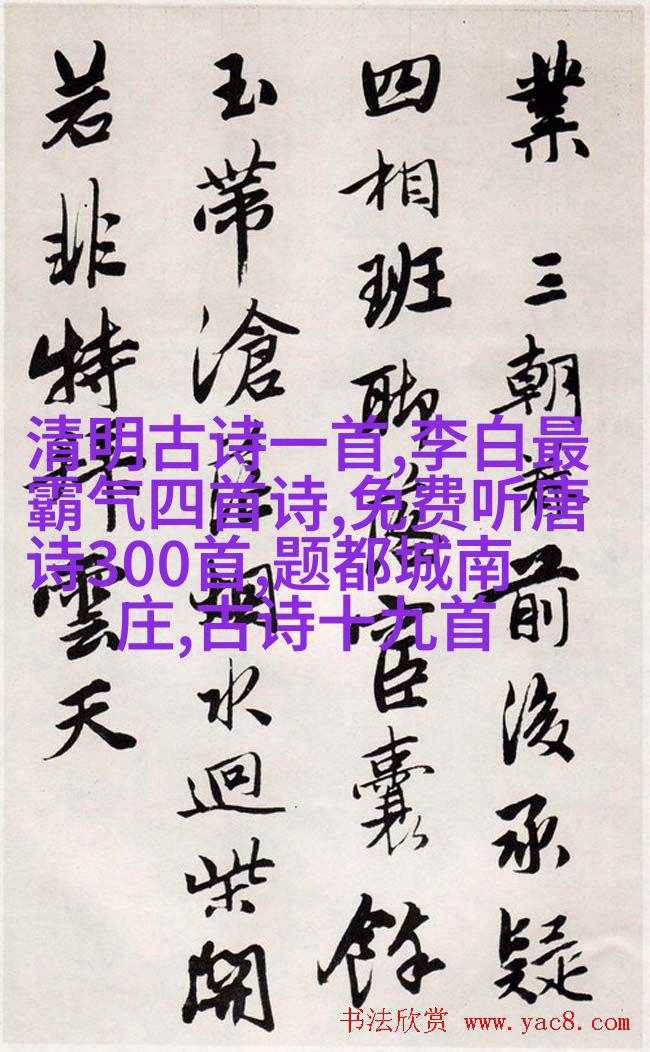 業 三朝前後承疑
四相班聯臣囊餘
玉帶滄水迴柴開
若非特雲天
清明古诗一首,李白最
霸气四首诗,免费听唐
诗300首,题都城南
庄,古诗十九首
书法欣赏 www.yac8.com